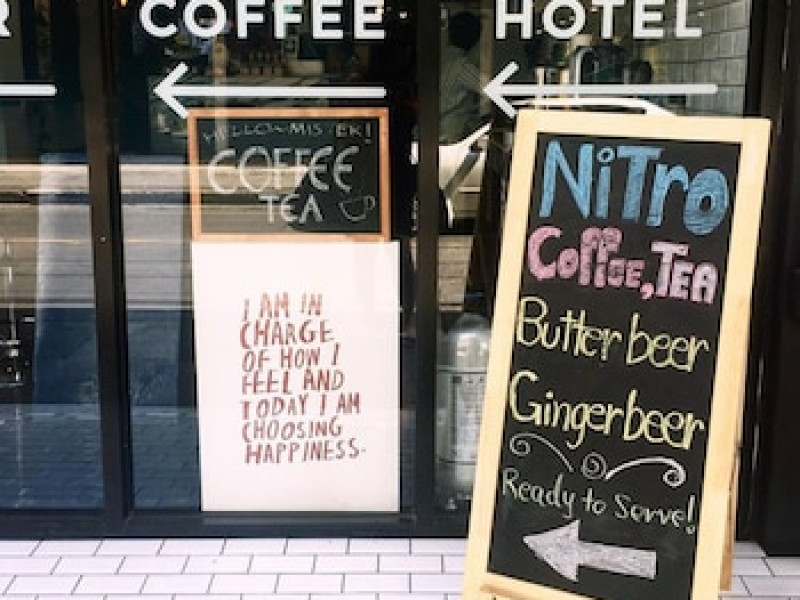 R
COFFEE
HOTEL
COFFEE
TEA
I AM IN
CHARGE
OF HOW I
FEEL AND
TODAY I AM
CHOOSING
HAPPINESS.
NiTro
Coffee, TEA
Butter beer
Gingerbeer
Ready to Serve!